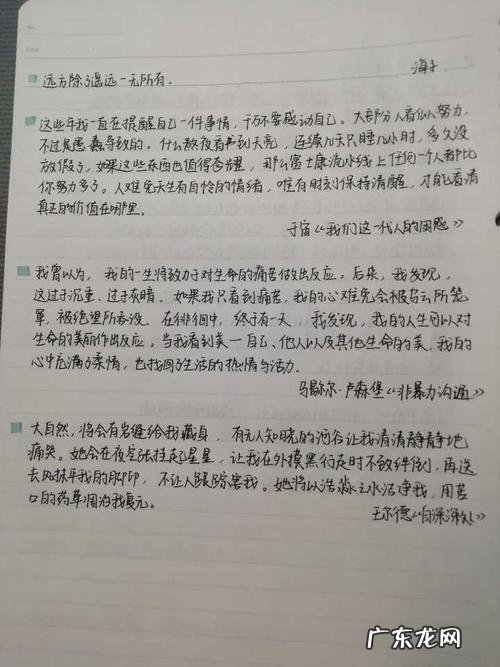 海子
远方除了遥远一无所有。
这些年我一直在提醒自己一件事情，千万不要感动自己。大部分人看似努力，
不过是愚蠢导致的。什么熬夜看书到天亮，连续几天只睡几小时，多久没
放假了，如果这些东西也值得夸耀，那么富士康流水线上任何一个人都比
你努力多了。人难免天生有自怜的情绪，唯有时刻保持清醒，才能看清
真正的价值在哪里。
于宙《我们这一代人的困惑》
我曾以为，我的一生将致力于对生命的痛苦做出反应。后来，我发现，
这过于沉重、过于灰暗。如果我只看到痛苦，我的心难免会被乌云所笼
罩，被绝望所吞没。在徘徊中，终于有一天，我发现，我的人生可以对
生命的美丽作出反应。当我看到美一自己、他人以及其他生命的美，我的
心中充满了柔情，也找回了生活的热情与活力。
马歇尔·卢森堡《非暴力沟通》
大自然，将会有岩缝给我藏身，有无人知晓的河谷让我清清静静地
痛哭。她会在夜空张挂起星星，让我在外摸黑行走时不致绊倒，再送
去风抹平我的脚印，不让人跟踪害我。她将以浩淼之水洁净我，用苦
口的药草调治我复元。
王尔德《自深深处》
广东龙网